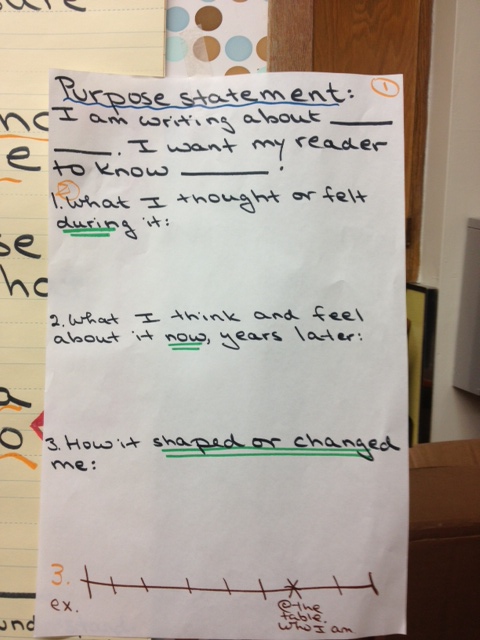 Purpose statement:
①
I am writing about ____
____. I want my reader
to know ____!
②
1. What I thought or felt
during it:
2. What I think and feel
about it now, years later:
3. How it shaped or changed
me:
3.
ex.
@ the
table.
Who I am